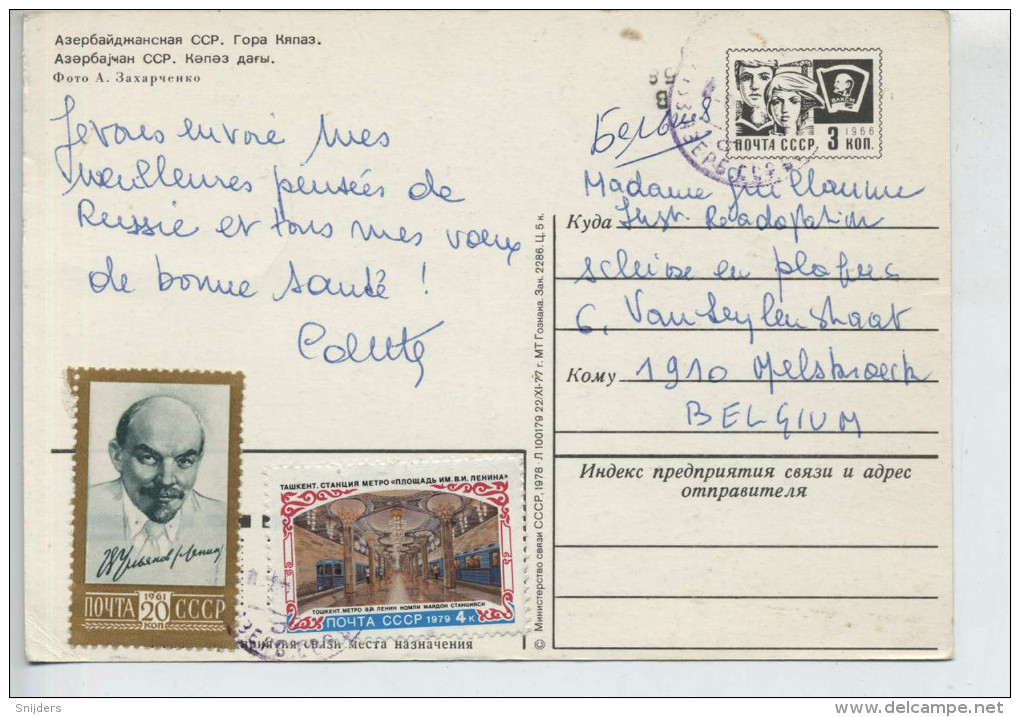 Азербайджанская ССР. Гора Кяпаз.
Азәрбајҹан ССР. Кәпәз дағы.
Фото А. Захарченко
Je vous envoie mes
meilleures pensées de
Russie et tous mes vœux
de bonne santé !
ВЛКСМ
1966
ПОЧТА СССР. 3 КОП.
Бельгия
Madame Guillaume
Куда Inst. Readaptation
6, Van
Кому 1910 Melsbroeck
BELGIUM
Индекс предприятия связи и адрес
отправителя
© Министерство связи СССР, 1978 · Л 100179 22/XI-77 г. МТ Гознака. Зак. 2286. Ц. 5 к.
В Ульянов (Ленин)
1961
ПОЧТА 20 СССР
КОП
ТАШКЕНТ. СТАНЦИЯ МЕТРО «ПЛОЩАДЬ ИМ. В.И. ЛЕНИНА»
ТОШКЕНТ. МЕТРО В.И. ЛЕНИН НОМЛИ МАЙДОН СТАНЦИЯСИ
ПОЧТА СССР 1979 4 К
связи места назначения
Snijders
delcampe.net